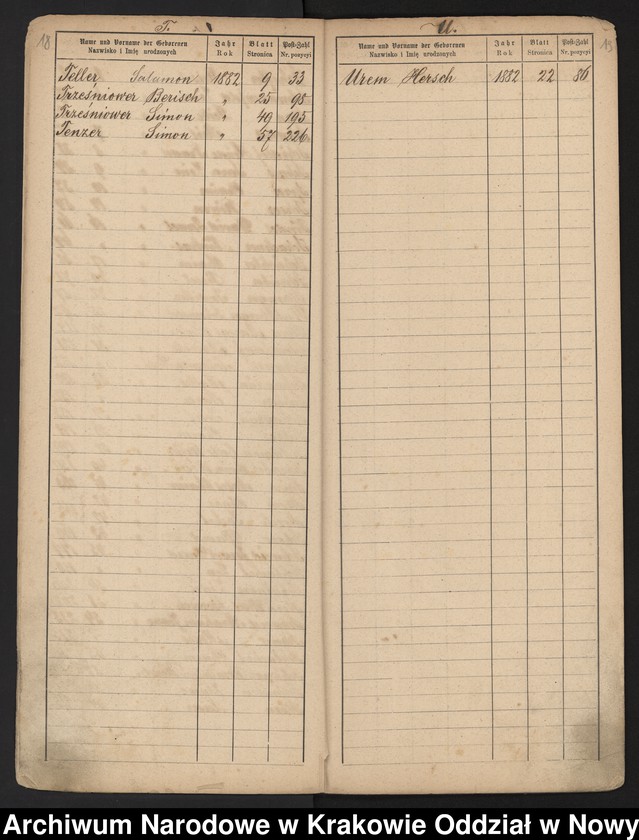 18
T.
Name und Vorname der Geborenen
Nazwisko i Imię urodzonych
Jahr
Rok
Blatt
Stronica
Post-Zahl
Nr. pozycyi
Teller Salamon 1882 9 33
Trześniower Berisch " 25 98
Trześniower Simon " 49 195
Tenzer Simon " 57 226
U.
19
Name und Vorname der Geborenen
Nazwisko i Imię urodzonych
Jahr
Rok
Blatt
Stronica
Post-Zahl
Nr. pozycyi
Urem Hersch 1882 22 86
Archiwum Narodowe w Krakowie Oddział w Nowy